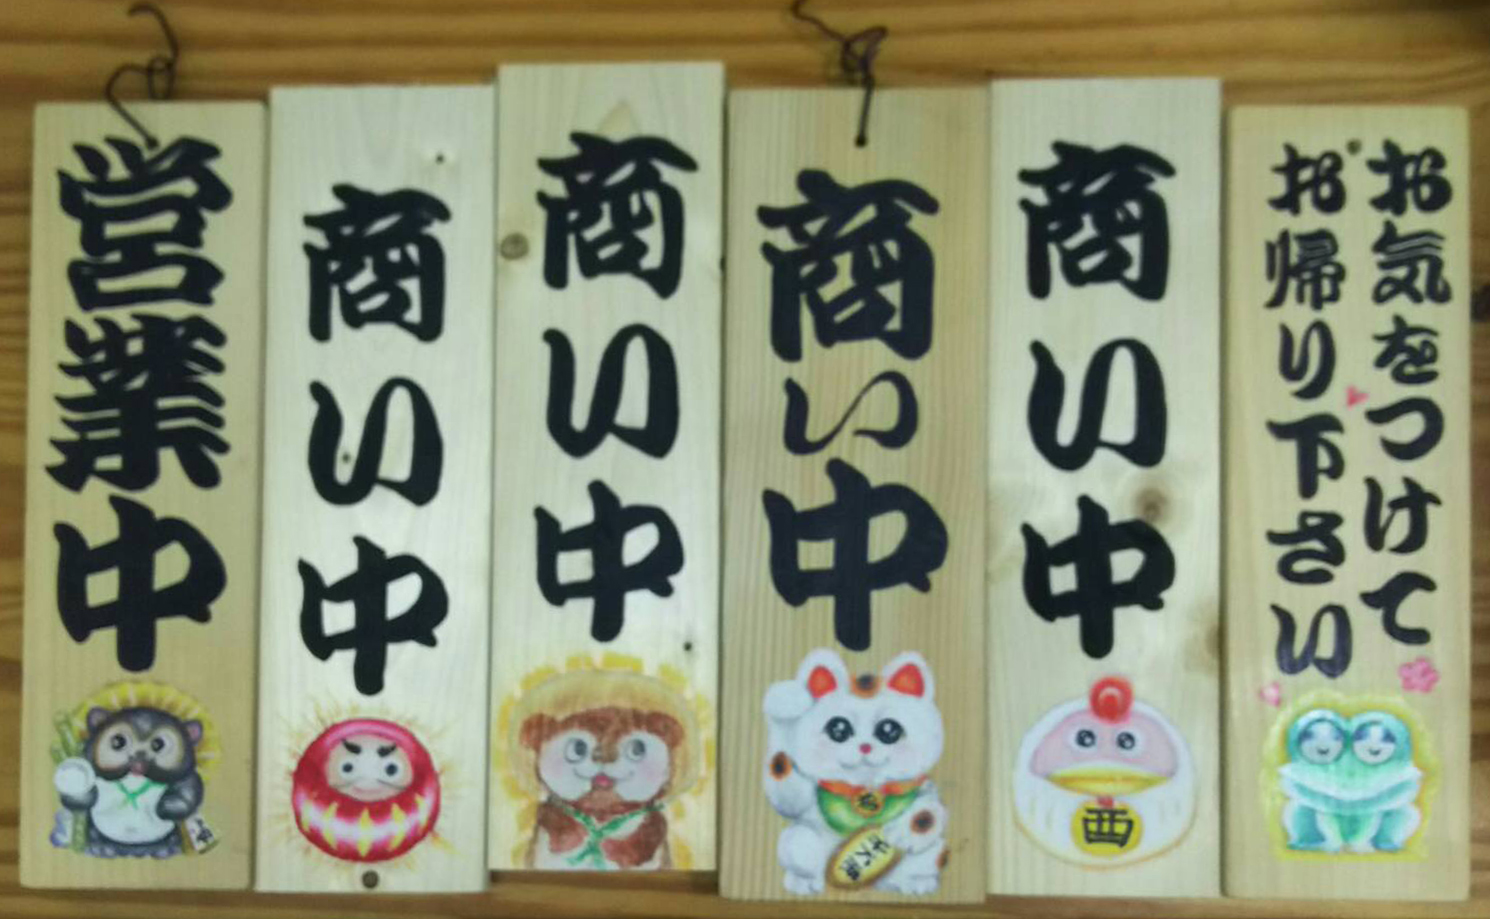 営業中
商い中
商い中
商い中
商い中
酉
お気をつけて
お帰り下さい